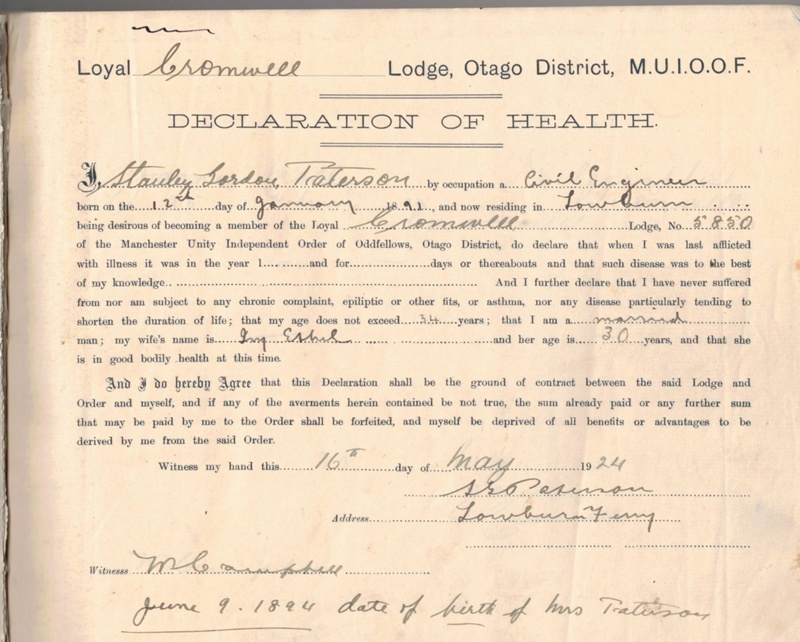 Loyal Cromwell Lodge, Otago District, M.U.I.O.O.F.
DECLARATION OF HEALTH.
I, Stanley Gordon Paterson by occupation a Civil Engineer
born on the 12th day of January 1891, and now residing in Lowburn
being desirous of becoming a member of the Loyal Cromwell Lodge, No. 5850
of the Manchester Unity Independent Order of Oddfellows, Otago District, do declare that when I was last afflicted
with illness it was in the year 1........and for........days or thereabouts and that such disease was to the best
of my knowledge.. And I further declare that I have never suffered
from nor am subject to any chronic complaint, epiliptic or other fits, or asthma, nor any disease particularly tending to
shorten the duration of life; that my age does not exceed 34 years; that I am a married
man; my wife's name is Ivy Ethel and her age is 30 years, and that she
is in good bodily health at this time.
And I do hereby Agree that this Declaration shall be the ground of contract between the said Lodge and
Order and myself, and if any of the averments herein contained be not true, the sum already paid or any further sum
that may be paid by me to the Order shall be forfeited, and myself be deprived of all benefits or advantages to be
derived by me from the said Order.
Witness my hand this 16th day of May 1924
S G Paterson
Address Lowburn Ferry
Witnesss W Campbell
June 9. 1894 date of birth of Mrs Paterson